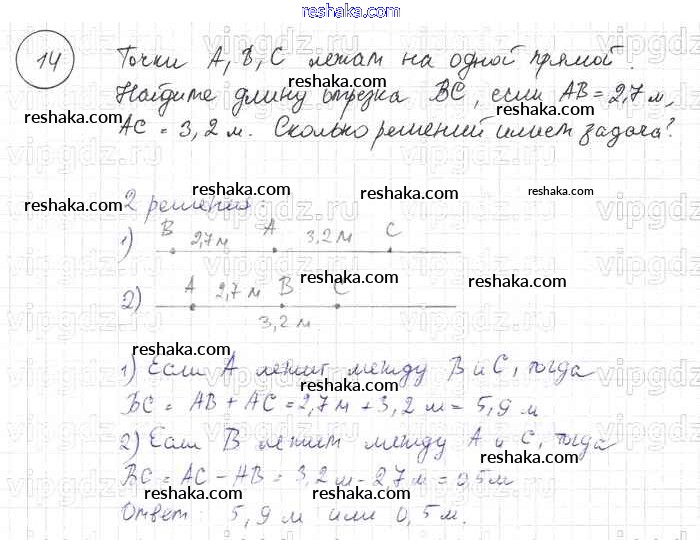 reshaka.com
14 Точки A, B, C лежат на одной прямой.
reshaka.com reshaka.com
Найдите длину отрезка BC, если AB = 2,7 м,
AC = 3,2 м. Сколько решений имеет задача?
reshaka.com reshaka.com
vipgdz.ru vipgdz.ru vipgdz.ru
reshaka.com reshaka.com reshaka.com
2 решения:
1) B 2,7 м A 3,2 м C
reshaka.com reshaka.com
2) A 2,7 м B C
3,2 м
reshaka.com reshaka.com
1) Если A лежит между B и C, тогда
BC = AB + AC = 2,7 м + 3,2 м = 5,9 м
reshaka.com reshaka.com
2) Если B лежит между A и C, тогда
BC = AC - AB = 3,2 м - 2,7 м = 0,5 м
reshaka.com reshaka.com
Ответ: 5,9 м или 0,5 м.